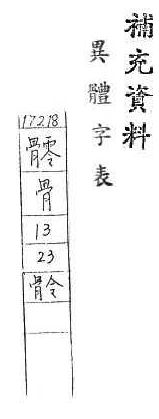 補充資料
異體字表
17218
⿰骨零
骨
13
23
⿰骨令